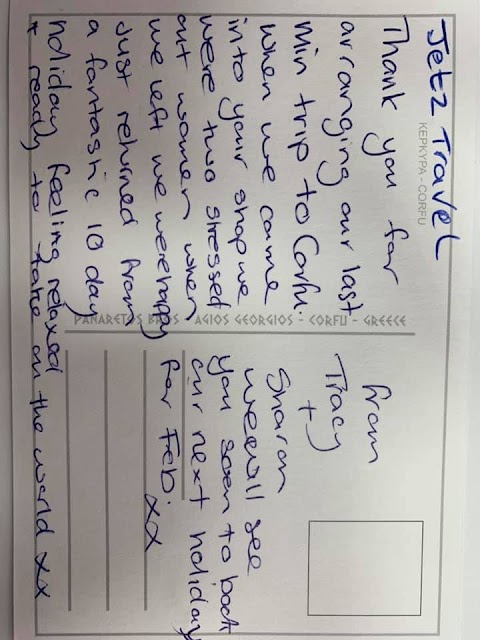 Jetz Travel
ΚΕΡΚΥΡΑ - CORFU
Thank you for
arranging our last
min trip to Corfu.
when we came
into your shop we
were two stressed
out women when
we left we were happy
Just returned from
a fantastic 10 day
holiday feeling relaxed
+ ready to take on the world xx
PANARETOS BROS - AGIOS GEORGIOS - CORFU - GREECE
from
Tracy
+
Sharon
we will see
you soon to book
our next holiday
for Feb.
xx